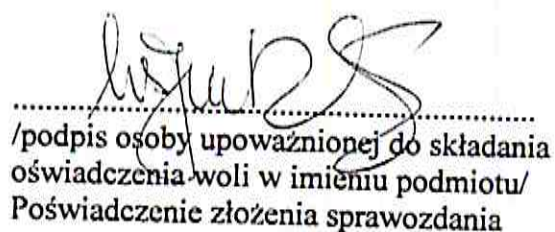 /podpis osoby upoważnionej do składania
oświadczenia woli w imieniu podmiotu/
Poświadczenie złożenia sprawozdania